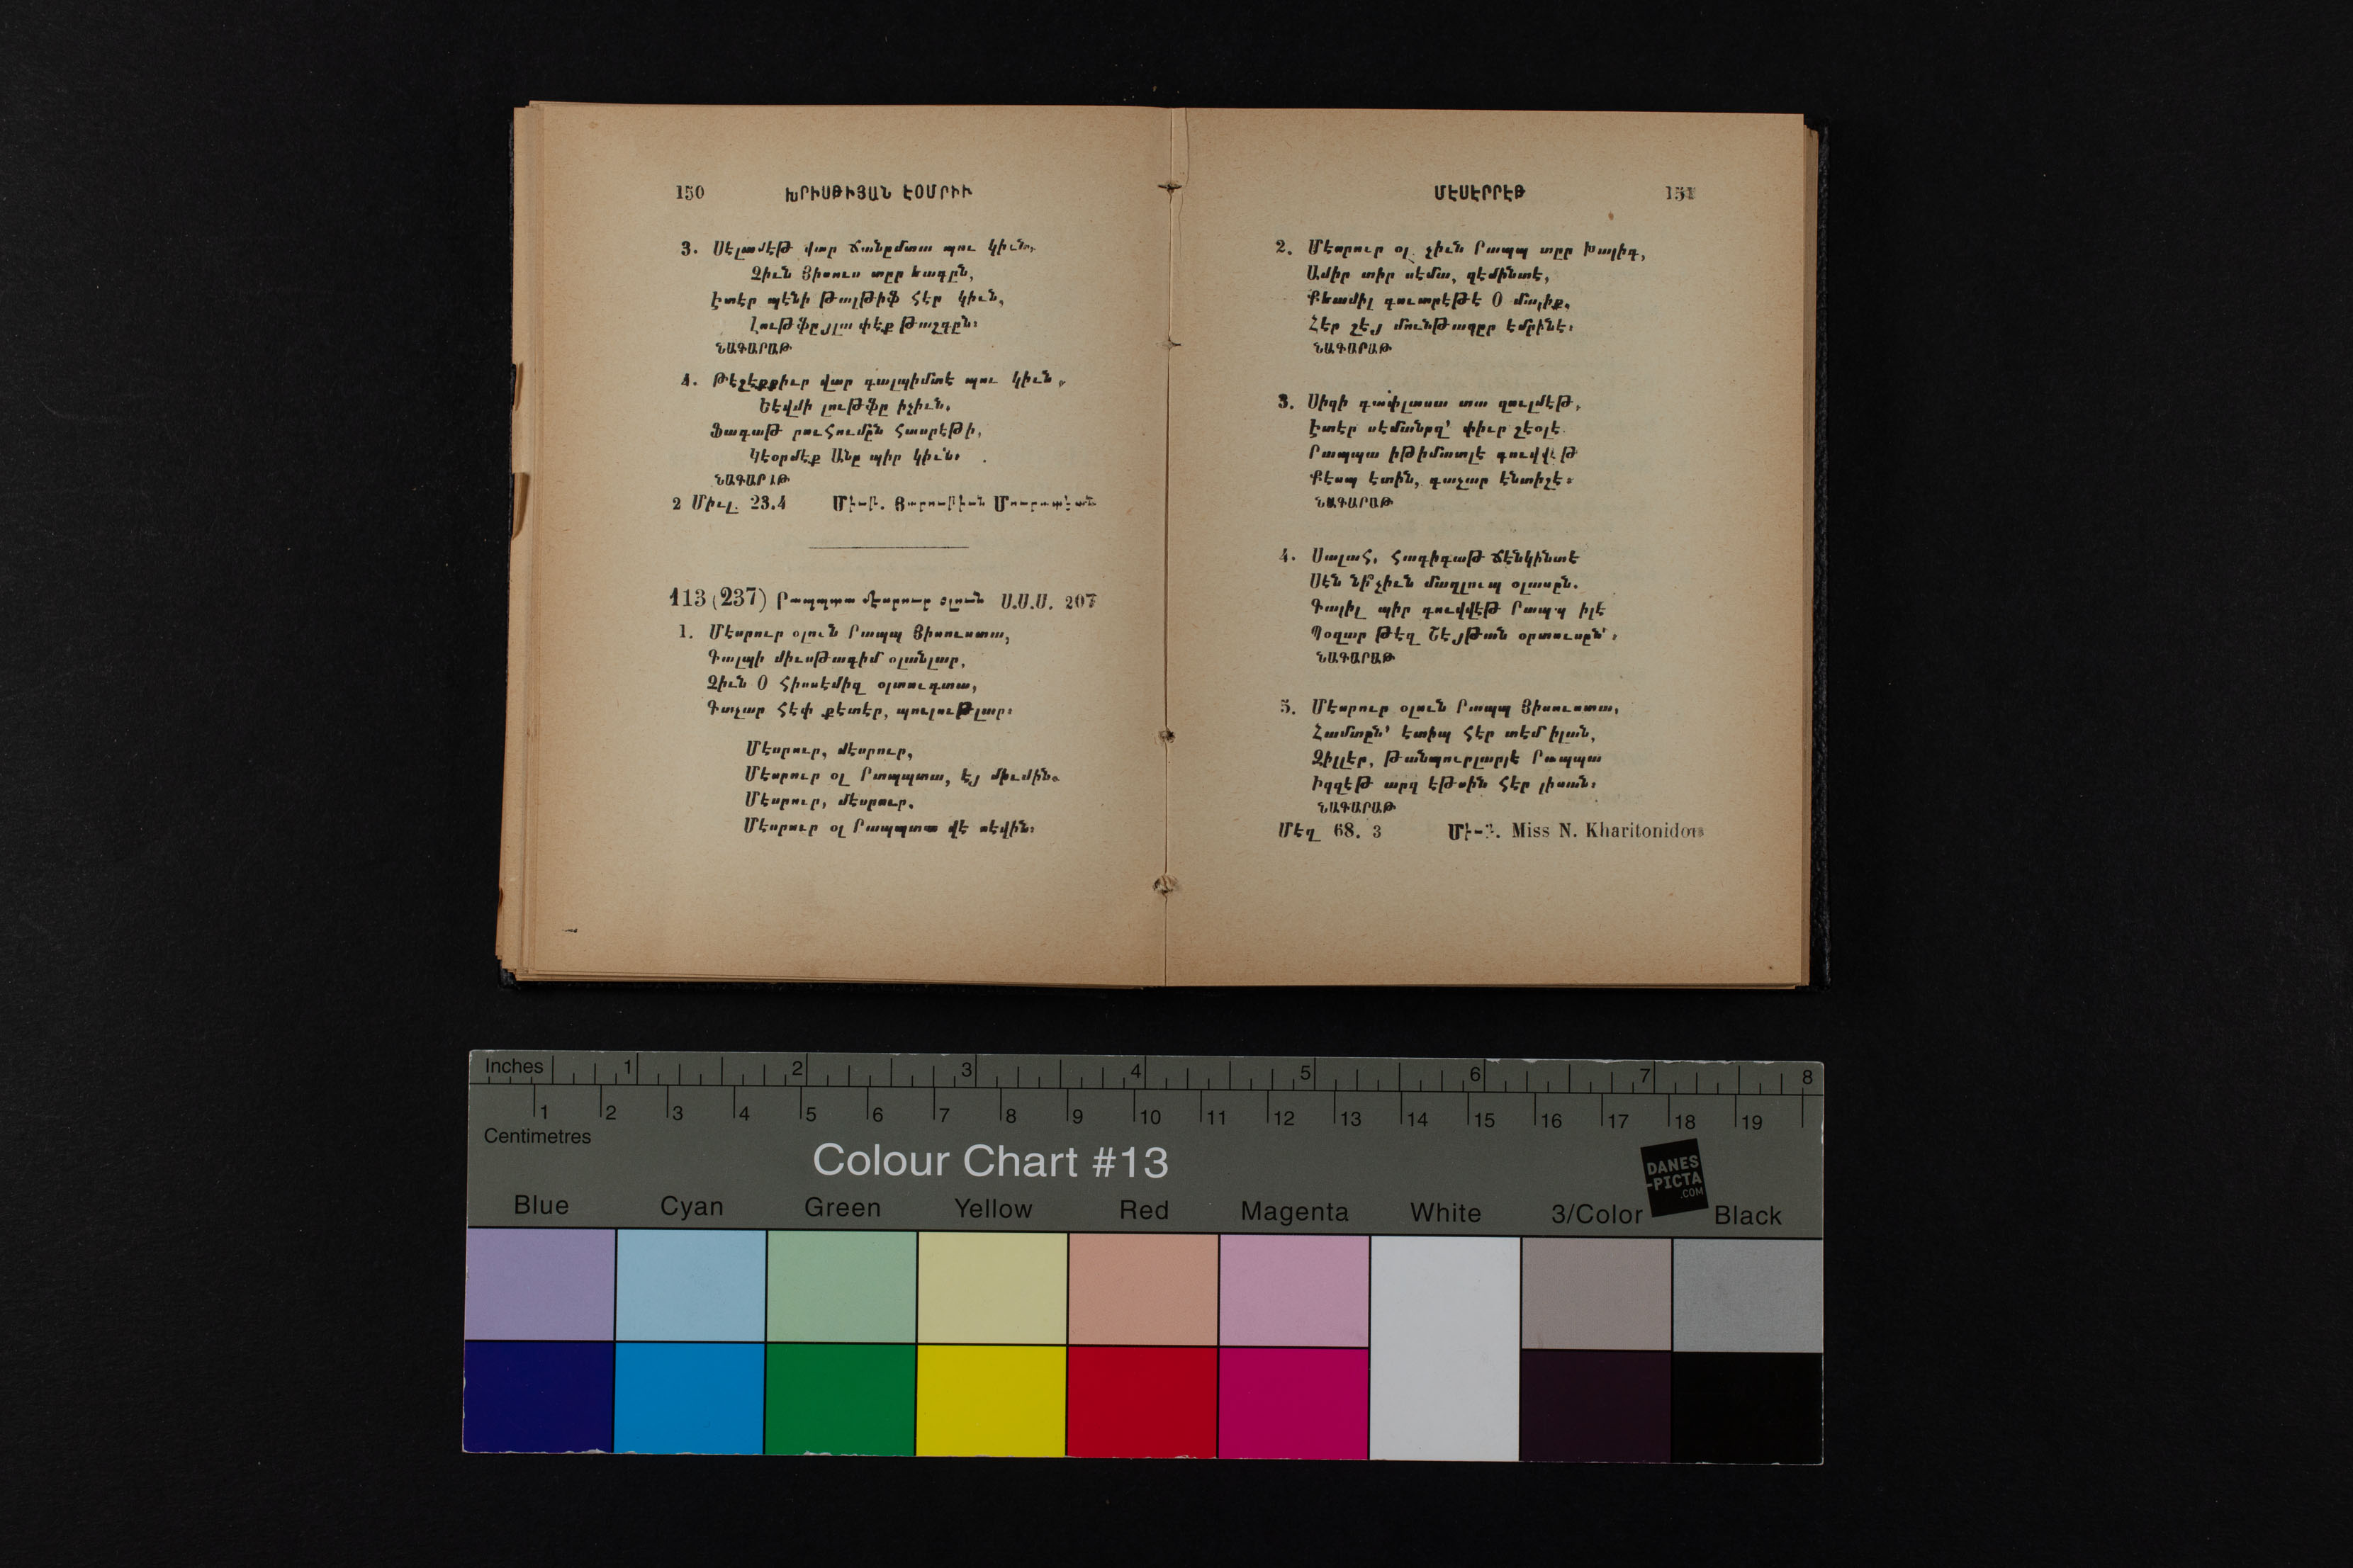 150 ԽՐԻՍԹԻՅԱՆ ԷՕՄՐԻՒ
3. Սէլամէթ վար ճանըմտա պու կիւն,
Չիւն Յիսուս տըր եազըն,
Իտէր պէնի թալթիֆ հէր կիւն,
Լութֆըյլա փէք թաշգըն։
ՆԱԳԱՐԱԹ
4. Թէշէքքիւր վար գալպիմտէ պու կիւն,
Եէվմի լութֆը իչիւն,
Ֆագաթ րուհումըն հասրէթի,
Կէօրմէք Անը պիր կիւն։
ՆԱԳԱՐԱԹ
2 Միւլ. 23.4
113 (237) Րապպտա մէսրուր օլուն Ս.Ս.Ս. 207
1. Մէսրուր օլուն Րապպ Յիսուստա,
Գալպի միւսթագիմ օլանլար,
Չիւն Օ հիսսէմիզ օլտուղտա,
Գաչար հէփ քէտէր, պուլութլար։
Մէսրուր, մէսրուր,
Մէսրուր օլ Րապպտա, էյ միւմին.
Մէսրուր, մէսրուր,
Մէսրուր օլ Րապպտա վէ սէվին։
ՄԷՍԷՐՐԷԹ 151
2. Մէսրուր օլ չիւն Րապպ տըր Խալիգ,
Ամիր տիր սէմա, զէմինտէ,
Քեամիլ գուտրէթէ Օ մալիք,
Հէր շէյ մունթազըր էմրինէ։
ՆԱԳԱՐԱԹ
3. Սիզի գափլասա տա զուլմէթ,
Իտէր սէմանըզ՝ փիւր շէօլէ.
Րապպա իթիմատլէ գուվվէթ
Քէսպ էտին, գաչար էնտիշէ։
ՆԱԳԱՐԱԹ
4. Սալահ, հագիգաթ ճէնկինտէ
Սէն նի՞չիւն մաղլուպ օլասըն.
Գալիլ պիր գուվվէթ Րապպ իլէ
Պօզար թէզ Շէյթան օրտուսըն՝։
ՆԱԳԱՐԱԹ
5. Մէսրուր օլուն Րապպ Յիսուստա,
Համտըն՝ էտիպ հէր տէմ իլան,
Զիլլէր, թանպուրլարլէ Րապպա
Իզզէթ արզ էթսին հէր լիսան։
ՆԱԳԱՐԱԹ
Մէզ 68. 3 Miss N. Kharitonidou
Inches 1 2 3 4 5 6 7 8
1 2 3 4 5 6 7 8 9 10 11 12 13 14 15 16 17 18 19
Centimetres
Colour Chart #13
DANES
-PICTA
.COM
Blue Cyan Green Yellow Red Magenta White 3/Color Black